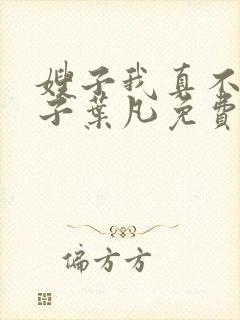 嫂子我真不
子葉凡免費
偏方方